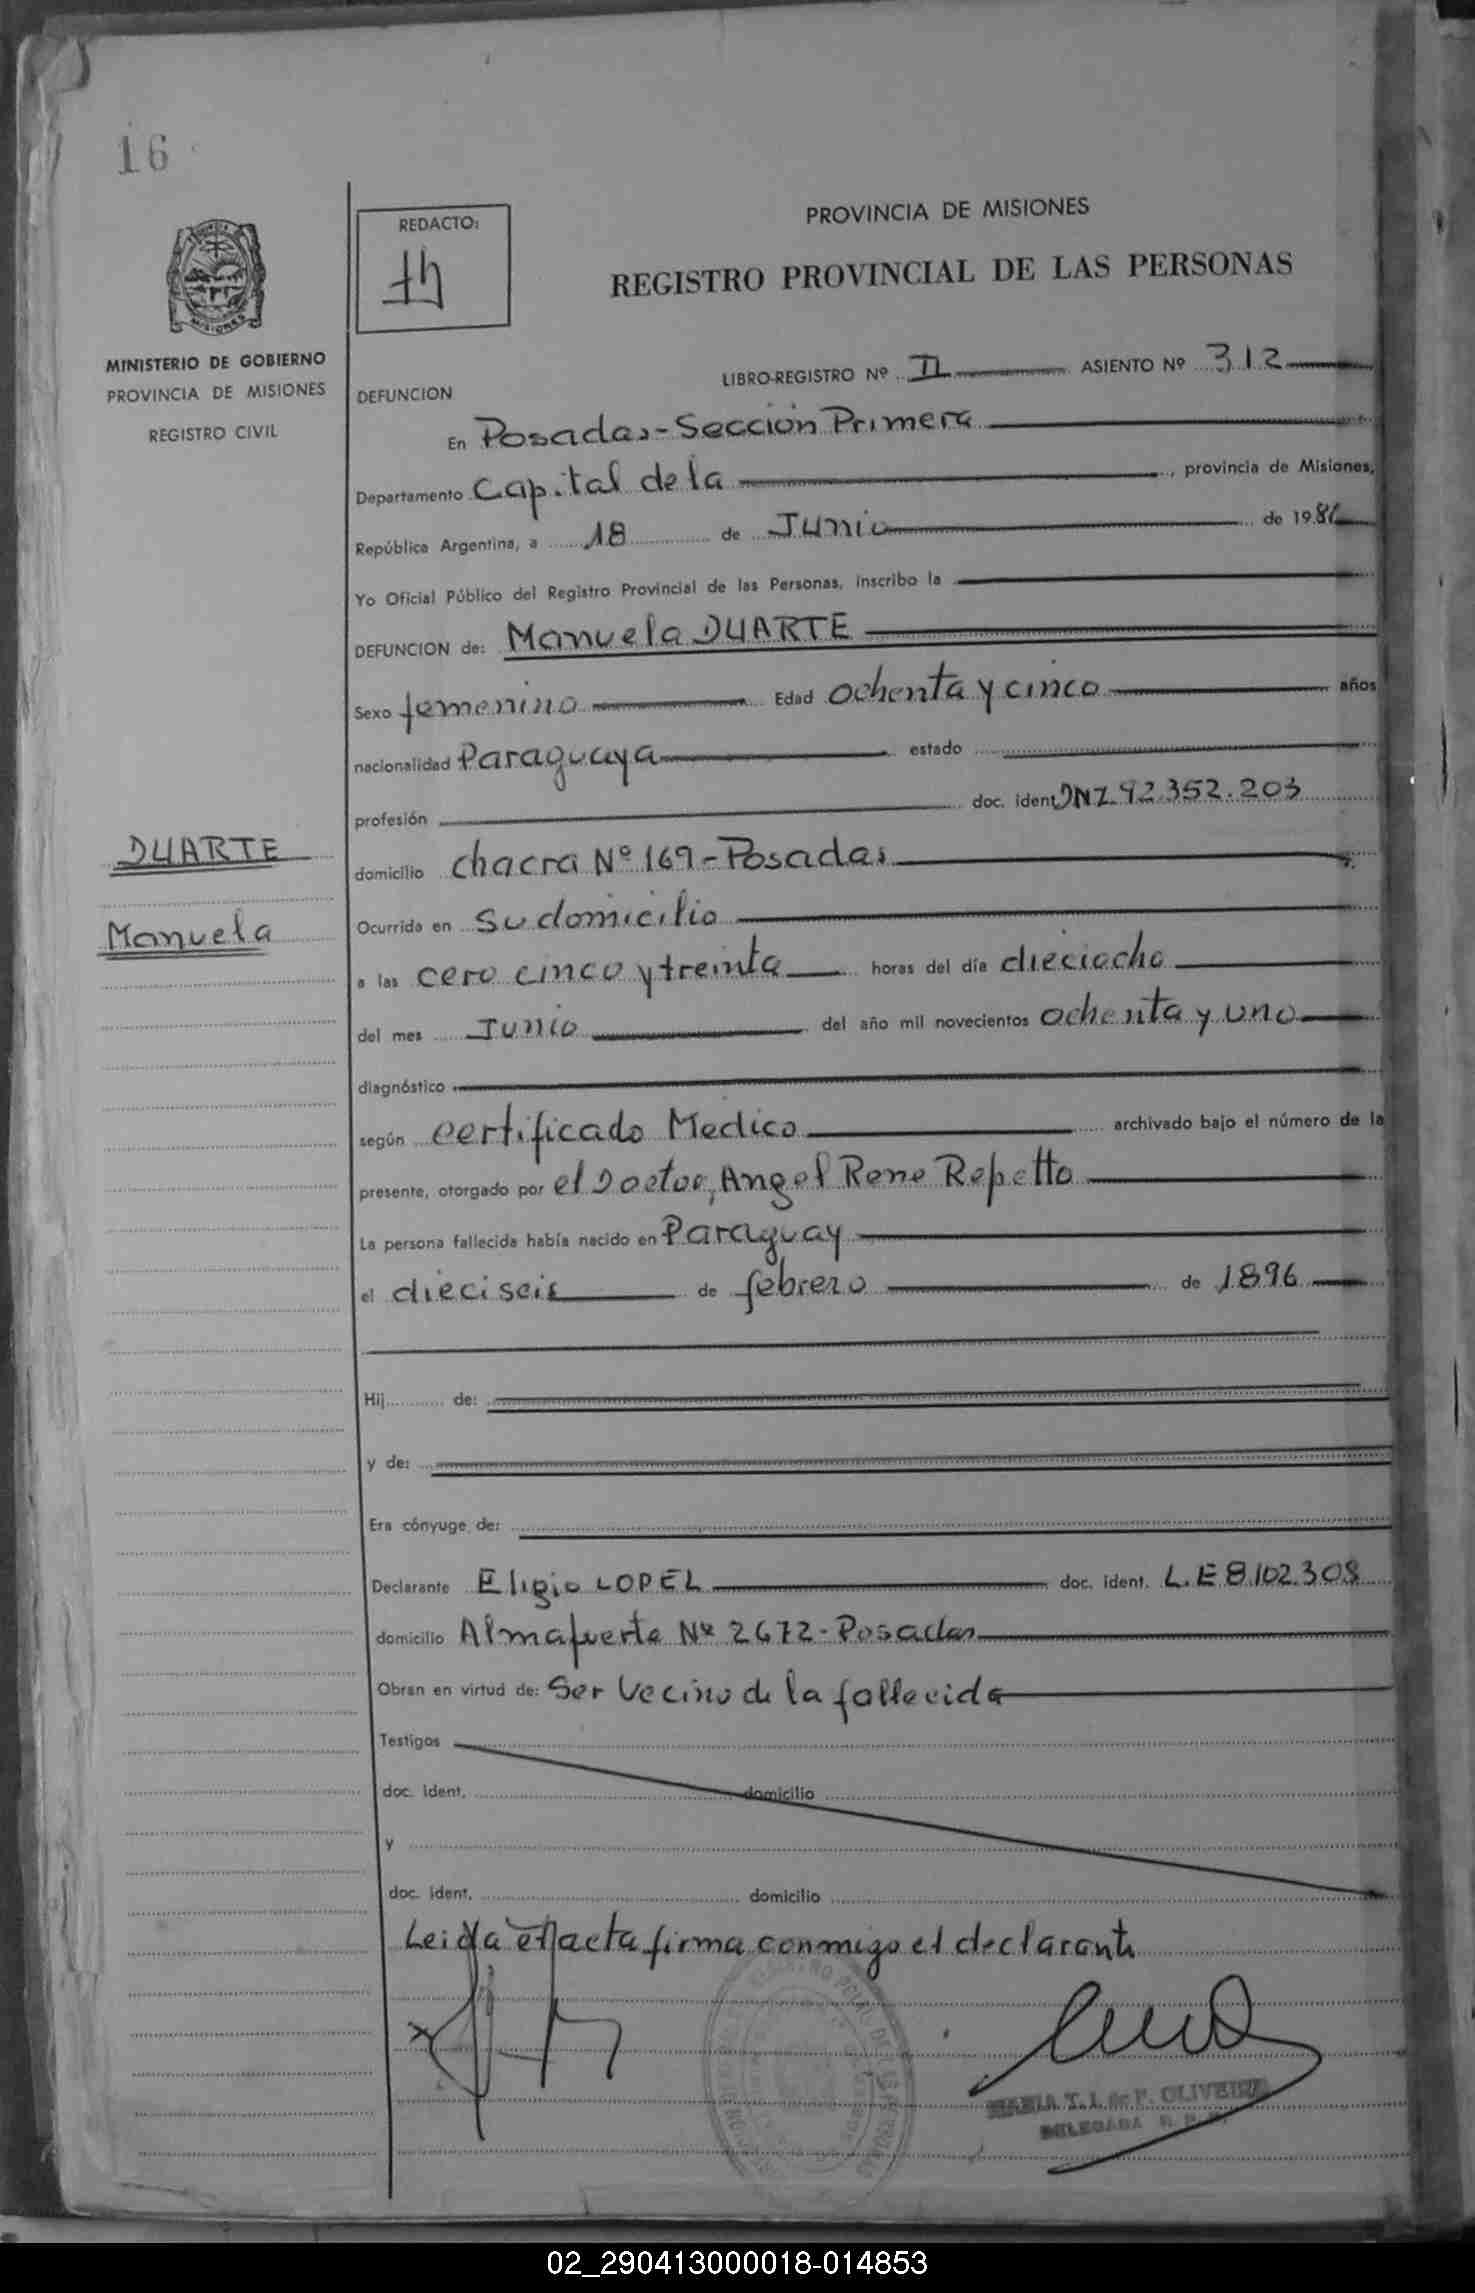 16
REDACTO:
PROVINCIA DE MISIONES
REGISTRO PROVINCIAL DE LAS PERSONAS
MISIONES
MINISTERIO DE GOBIERNO
PROVINCIA DE MISIONES
REGISTRO CIVIL
DEFUNCION
LIBRO-REGISTRO Nº II ASIENTO Nº 312
En Posadas-Sección Primera
Departamento Capital de la, provincia de Misiones,
República Argentina, a 18 de Junio de 1981
Yo Oficial Público del Registro Provincial de las Personas, inscribo la
DEFUNCION de: Manuela DUARTE
Sexo femenino Edad ochenta y cinco años
nacionalidad Paraguaya estado
profesión doc. ident. DNI. 92.352.203
DUARTE
Manuela
domicilio chacra Nº 169-Posadas
Ocurrida en su domicilio
a las cero cinco y treinta horas del día dieciocho
del mes Junio del año mil novecientos ochenta y uno
diagnóstico
según certificado Medico archivado bajo el número de la
presente, otorgado por el Doctor, Angel Rene Repetto
La persona fallecida había nacido en Paraguay
el dieciseis de febrero de 1896
Hij de:
y de:
Era cónyuge de:
Declarante Eligio LOPEZ doc. ident. L.E 8.102.308
domicilio Almafuerte Nº 2672-Posadas
Obran en virtud de: Ser Vecino de la fallecida
Testigos
doc. ident. domicilio
y
doc. ident. domicilio
Leida el acta firma conmigo el declarante
MARIA T. I. de F. OLIVEIRA
DELEGADA R. P. P.
02_290413000018-014853